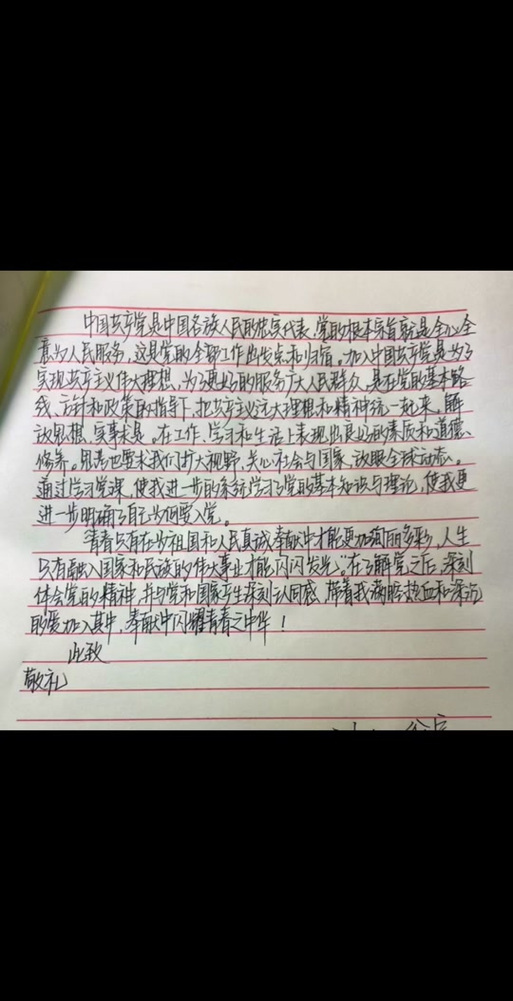 中国共产党是中国各族人民的忠实代表,党的根本宗旨就是全心全
意为人民服务,这是党的全部工作出发点和归宿。加入中国共产党是为了
实现共产主义伟大理想、为了更好的服务广大人民群众,是在党的基本路
线、方针和政策的指导下,把共产主义远大理想和精神统一起来,解
放思想,实事求是。在工作、学习和生活上表现出良好的素质和道德
修养。思想也要求我们扩大视野,关心社会与国家,放眼全球动态。
通过学习党课,使我进一步的系统学习了党的基本知识与理论,使我更
进一步明确了自己为何要入党。
青春只有在为祖国和人民真诚奉献中才能更加绚丽多彩,人生
只有融入国家和民族的伟大事业才能闪闪发光。”在了解党之后,深刻
体会党的精神,并与党和国家产生深刻认同感,带着我满腔热血和深沉
的爱加入其中,奉献中闪耀青春之中华!
此致
敬礼